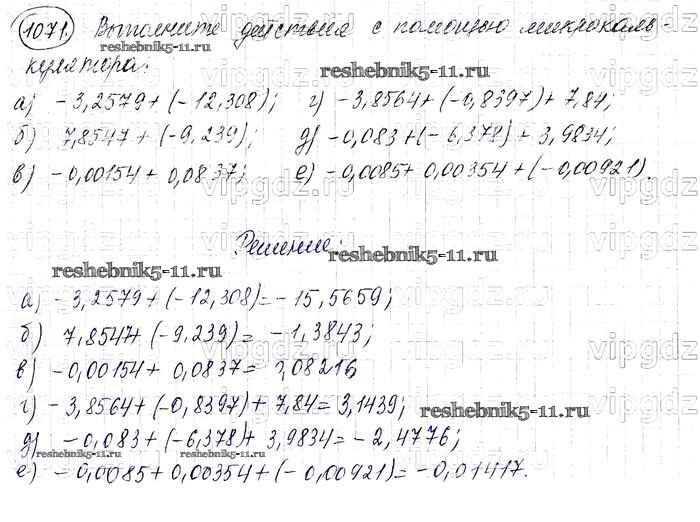 1071. Выполните действия с помощью микрокаль-
reshebnik5-11.ru
кулятора:
reshebnik5-11.ru
vipgdz
а) -3,2579+(-12,308); г) -3,8564+(-0,8397)+7,84;
б) 7,8547+(-9,239); д) -0,083+(-6,378)+3,9834;
в) -0,00154+0,0837; е) -0,0085+0,00354+(-0,00921).
reshebnik5-11.ru
vipgdz
Решение:
reshebnik5-11.ru
reshebnik5-11.ru
а) -3,2579+(-12,308)=-15,5659;
б) 7,8547+(-9,239)= -1,3843;
в) -0,00154+0,0837= 0,08216
г) -3,8564+(-0,8397)+7,84=3,1439;
reshebnik5-11.ru
д) -0,083+(-6,378)+3,9834=-2,4776;
reshebnik5-11.ru
reshebnik5-11.ru
е) -0,0085+0,00354+(-0,00921)=-0,01417.